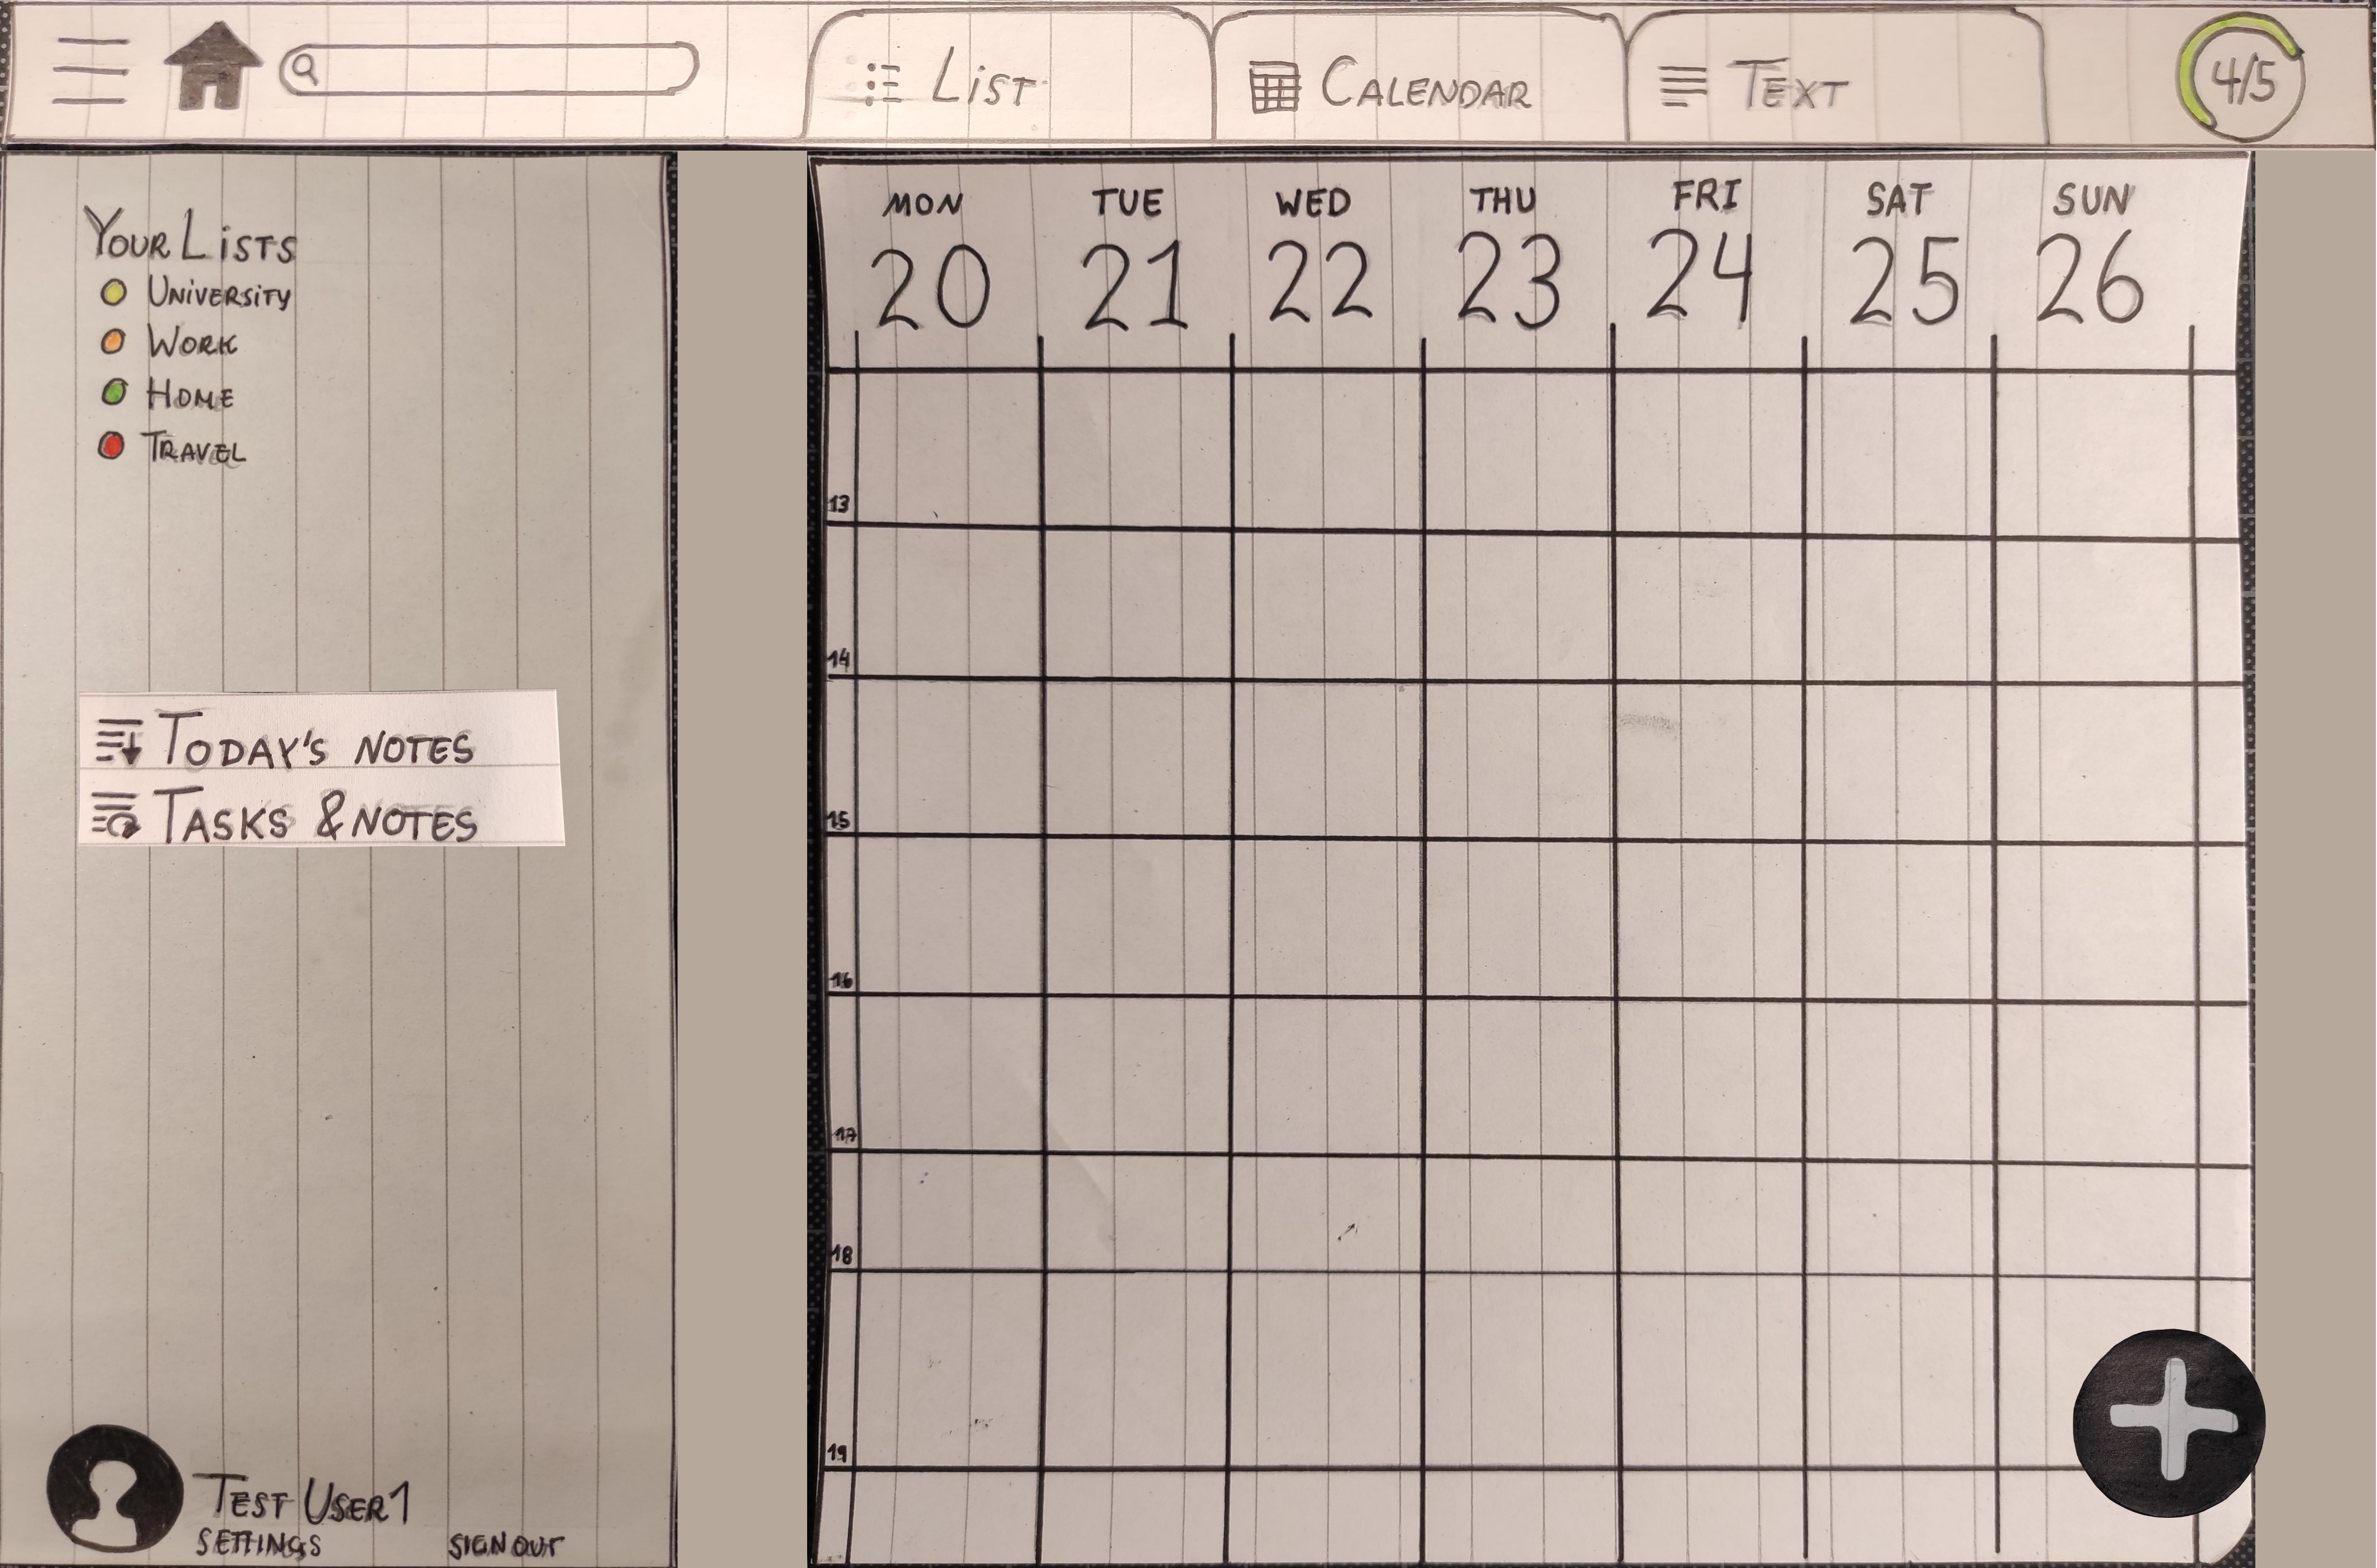 List
Calendar
Text
4/5
Your Lists
University
Work
Home
Travel
Today's notes
Tasks & notes
Test User1
Settings
Sign out
MON TUE WED THU FRI SAT SUN
20 21 22 23 24 25 26
13
14
15
16
17
18
19